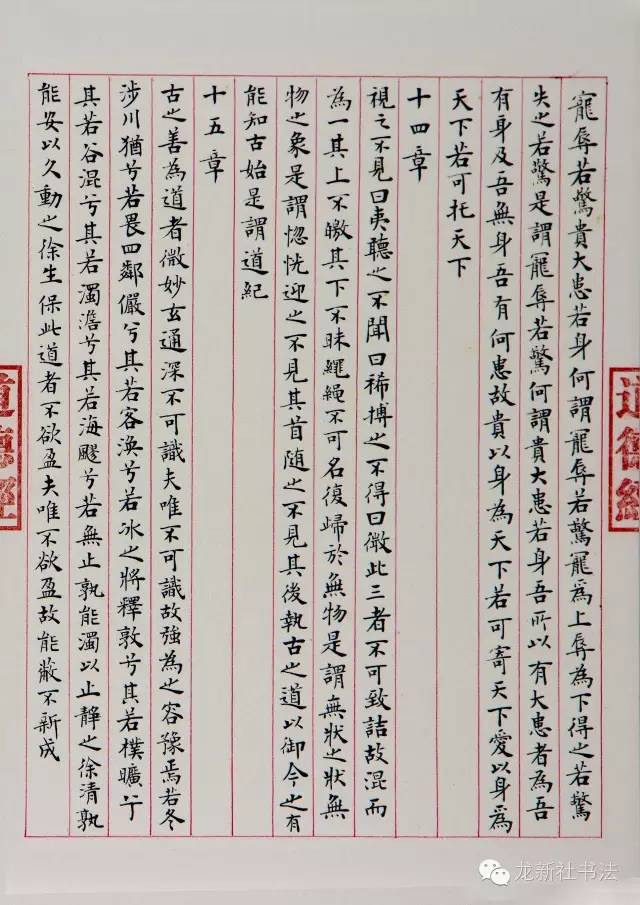 寵辱若驚貴大患若身何謂寵辱若驚寵為上辱為下得之若驚
失之若驚是謂寵辱若驚何謂貴大患若身吾所以有大患者為吾
有身及吾無身吾有何患故貴以身為天下若可寄天下愛以身為
天下若可托天下
十四章
視之不見曰夷聽之不聞曰稀搏之不得曰微此三者不可致詰故混而
為一其上不皦其下不昧繩繩不可名復歸於無物是謂無狀之狀無
物之象是謂惚恍迎之不見其首随之不見其後執古之道以御今之有
能知古始是謂道紀
十五章
古之善為道者微妙玄通深不可識夫唯不可識故強為之容豫焉若冬
涉川猶兮若畏四鄰儼兮其若客渙兮若冰之將釋敦兮其若樸曠兮
其若谷混兮其若濁澹兮其若海飂兮若無止孰能濁以止靜之徐清孰
能安以久動之徐生保此道者不欲盈夫唯不欲盈故能蔽不新成
道德經
道德經
龙新社书法